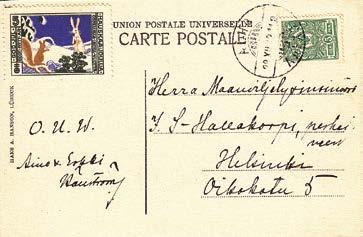 UNION POSTALE UNIVERSELLE
CARTE POSTALE
HANS A. HANSON, LÜBECK
O. U. W.
Aino & Erkki
Herra Maanviljelysinsinööri
I. S. Hallakorpi, perhei-
neen
Helsinki
Oikokatu 5